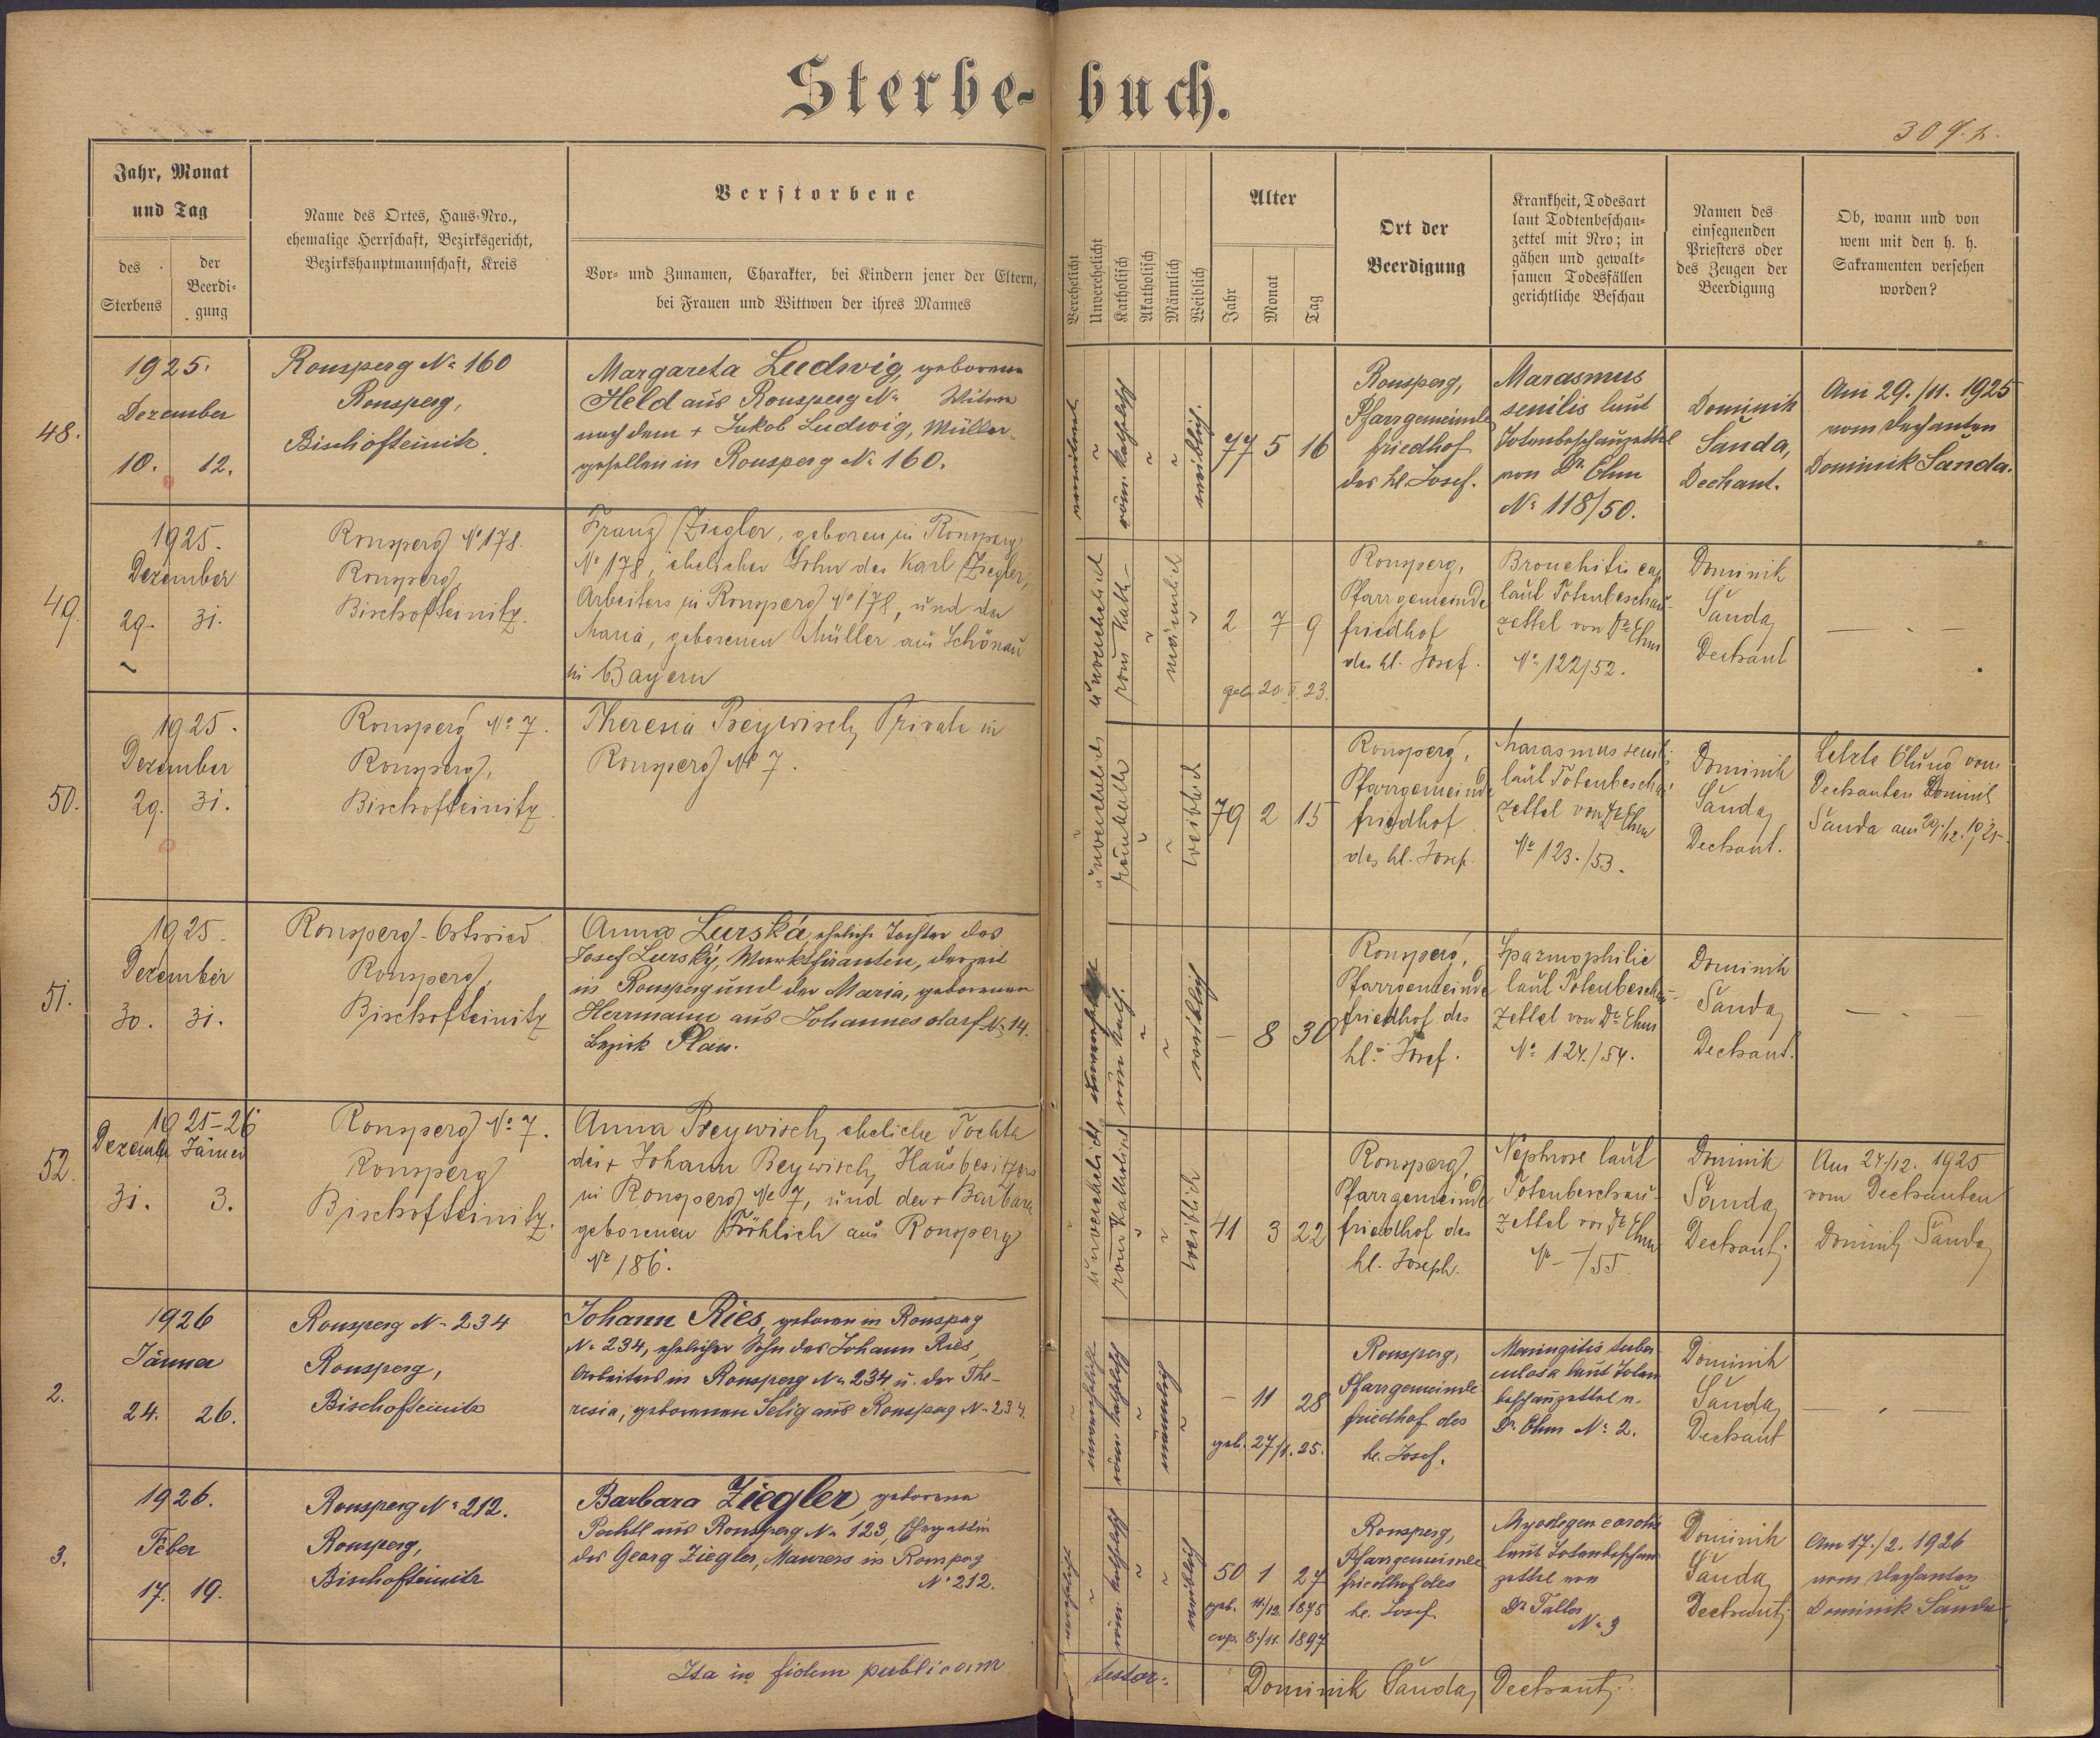 Sterbe-buch.
309.
Jahr, Monat
und Tag
des
Sterbens
der
Beerdi-
gung
Name des Ortes, Haus-Nro.,
ehemalige Herrschaft, Bezirksgericht,
Bezirkshauptmannschaft, Kreis
Verstorbene
Vor- und Zunamen, Charakter, bei Kindern jener der Eltern,
bei Frauen und Wittwen der ihres Mannes
Verehelicht
Unverehelicht
Katholisch
Akatholisch
Männlich
Weiblich
Alter
Jahr
Monat
Tag
Ort der
Beerdigung
Krankheit, Todesart
laut Todtenbeschau-
zettel mit Nro; in
gähen und gewalt-
samen Todesfällen
gerichtliche Beschau
Namen des
einsegnenden
Priesters oder
des Zeugen der
Beerdigung
Ob, wann und von
wem mit den h. h.
Sakramenten versehen
worden?
48.
1925.
Dezember
10. 12.
Ronsperg No 160
Ronsperg,
Bischofteinitz.
Margareta Ludwig, geborene
Held aus Ronsperg No Witwe
nach dem + Jakob Ludwig, Müller-
gesellen in Ronsperg No 160.
verwitwet
röm. katholisch
weiblich.
77 5 16
Ronsperg,
Pfarrgemeinde
friedhof
des hl. Josef.
Marasmus
senilis laut
Totenbeschauzettel
von Dr. Ehm
No 118/50.
Dominik
Šanda,
Dechant.
Am 29./11. 1925
vom Dechanten
Dominik Šanda.
49.
1925.
Dezember
29. 31.
Ronsperg No 178.
Ronsperg,
Bischofteinitz.
Franz Ziegler, geboren in Ronsperg
No 178, ehelicher Sohn des Karl Ziegler,
Arbeiters in Ronsperg No 178, und der
Maria, geborenen Müller aus Schönau
in Bayern
unverehelicht
röm. kath-
männlich
2 7 9
geb. 20. 5. 23.
Ronsperg,
Pfarrgemeinde
friedhof
des hl. Josef.
Bronchitis cap
laut Totenbeschau-
zettel von Dr. Ehm
No 122/52.
Dominik
Šanda,
Dechant
50.
1925.
Dezember
29. 31.
Ronsperg No 7.
Ronsperg,
Bischofteinitz.
Theresia Preywisch, Private in
Ronsperg No 7.
unverehelicht
weiblich
79 2 15
Ronsperg,
Pfarrgemeinde
friedhof
des hl. Josef.
Marasmus senil.
laut Totenbeschau
zettel von Dr. Ehm
No 123./53.
Dominik
Šanda,
Dechant.
Letzte Ölung vom
Dechanten Dominik
Šanda am 29./12. 1925.
51.
1925.
Dezember
30. 31.
Ronsperg-Ortsried
Ronsperg,
Bischofteinitz
Anna Lurská, eheliche Tochter des
Josef Lurský, Marktfieranten, derzeit
in Ronsperg und der Maria, geborenen
Herrmann aus Johannesdorf No 14.
Bezirk Plan.
röm. kath.
weiblich
- 8 30
Ronsperg,
Pfarrgemeinde
friedhof des
hl. Josef.
Spazmophilie
laut Totenbeschau-
zettel von Dr. Ehm
No 124./54.
Dominik
Šanda,
Dechant.
52.
1925-26
Dezember Jänner
31. 3.
Ronsperg No 7.
Ronsperg
Bischofteinitz.
Anna Preywisch, eheliche Tochter
des + Johann Beywisch, Hausbesitzers
in Ronsperg No 7, und der + Barbara
geborenen Fröhlich aus Ronsperg
No 186.
unverehelicht
röm. katholisch
weiblich
41 3 22
Ronsperg,
Pfarrgemeinde
friedhof des
hl. Joseph.
Nephrose laut
Totenbeschau-
zettel von Dr. Ehm
No -/55.
Dominik
Šanda,
Dechant.
Am 24./12. 1925
vom Dechanten
Dominik Šanda,
2.
1926
Jänner
24. 26.
Ronsperg No 234
Ronsperg,
Bischofteinitz
Johann Ries, geboren in Ronsperg
No 234, ehelicher Sohn des Johann Ries,
Arbeiters in Ronsperg No 234 u. der The-
resia, geborenen Selig aus Ronsperg No 234.
unverehelicht
röm. katholisch
männlich
- 11 28
geb. 27/1. 25.
Ronsperg,
Pfarrgemeinde
friedhof des
hl. Josef.
Meningitis tuber-
culosa laut Toten
beschauzettel v.
Dr. Ehm No 2.
Dominik
Šanda,
Dechant
3.
1926.
Feber
17. 19.
Ronsperg No 212.
Ronsperg,
Bischofteinitz
Barbara Ziegler, geborene
Pachtl aus Ronsperg No 123, Ehegattin
des Georg Ziegler, Maurers in Ronsperg
No 212.
verehelicht
röm. katholisch
weiblich
50 1 27
geb. 11/12. 1875
cop. 8./11. 1897
Ronsperg,
Pfarrgemeinde
friedhof des
hl. Josef.
Myodegen cordis
laut Totenbeschau
zettel von
Dr. Taller
No 3
Dominik
Šanda,
Dechant.
Am 17./2. 1926
vom Dechanten
Dominik Šanda
Ita in fidem publicam testor:
Dominik Šanda, Dechant.